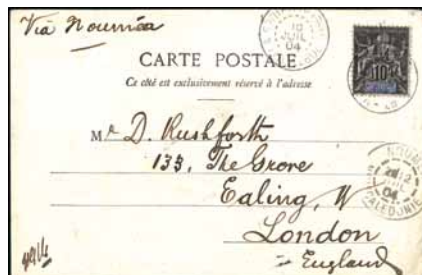 Via Nouméa
10
JUIL
04
CARTE POSTALE
Ce côté est exclusivement réservé à l'adresse
10
Mr D. Rushforth
135, The Grove
Ealing, W
London
England
NOUMÉA
JUIL
04
CALEDONIE